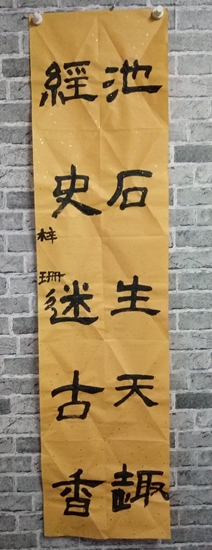 池石生天趣
經史迷古香
梓珊